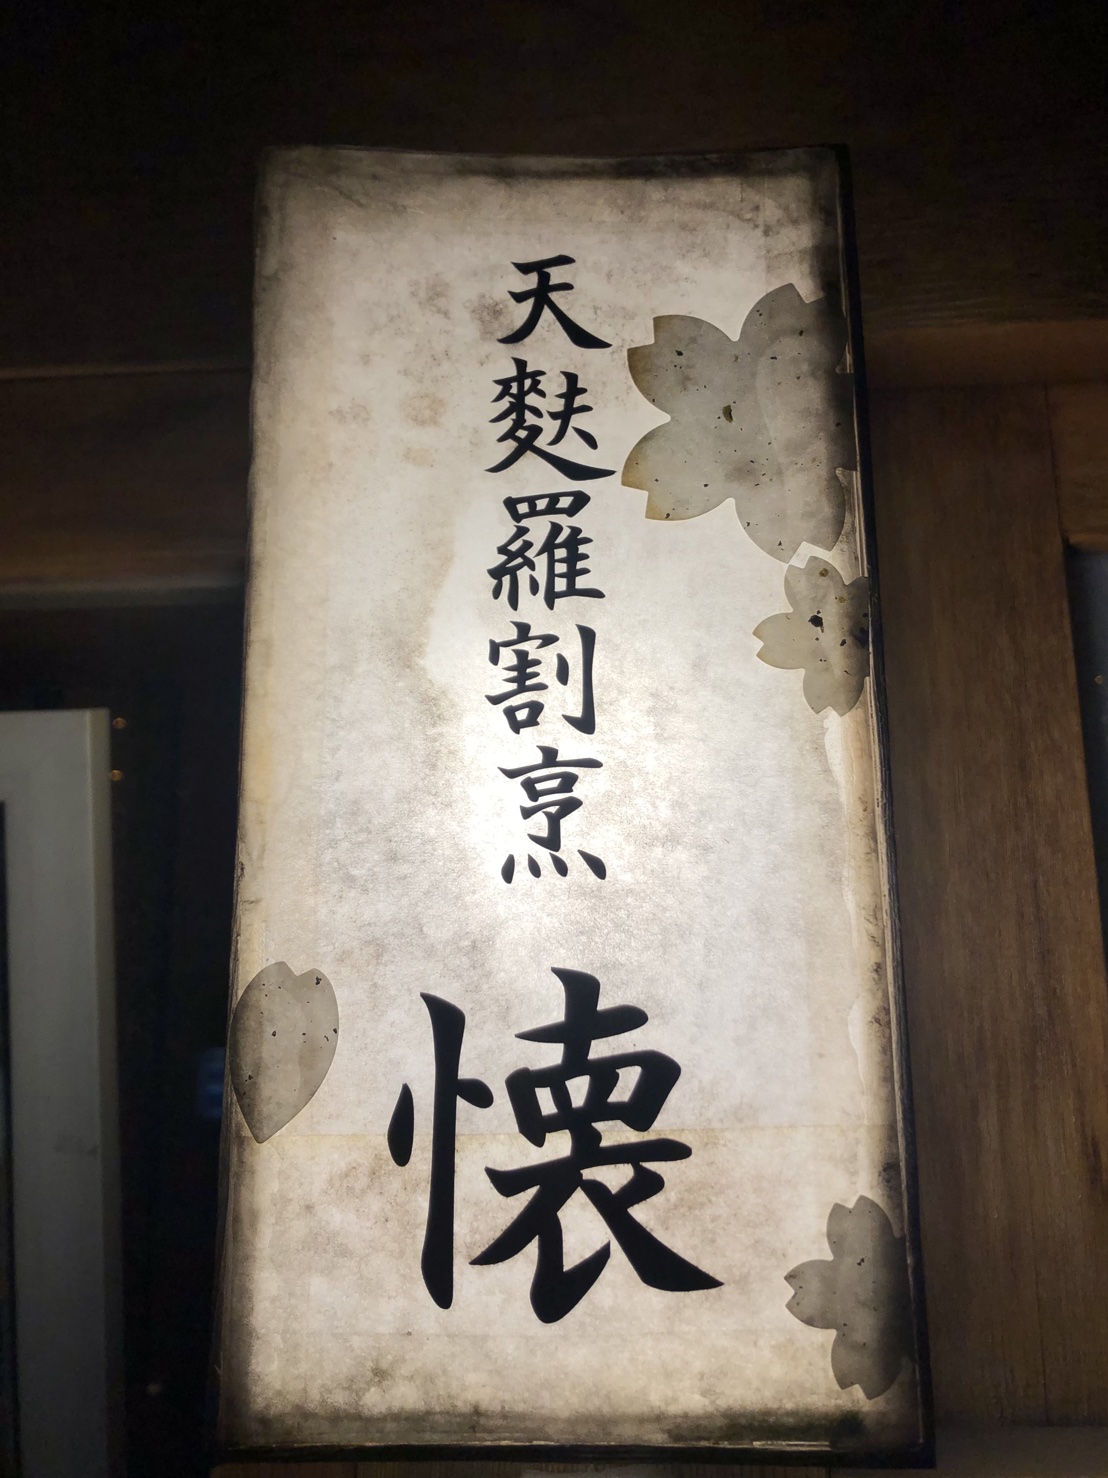 天麩羅割烹
懐